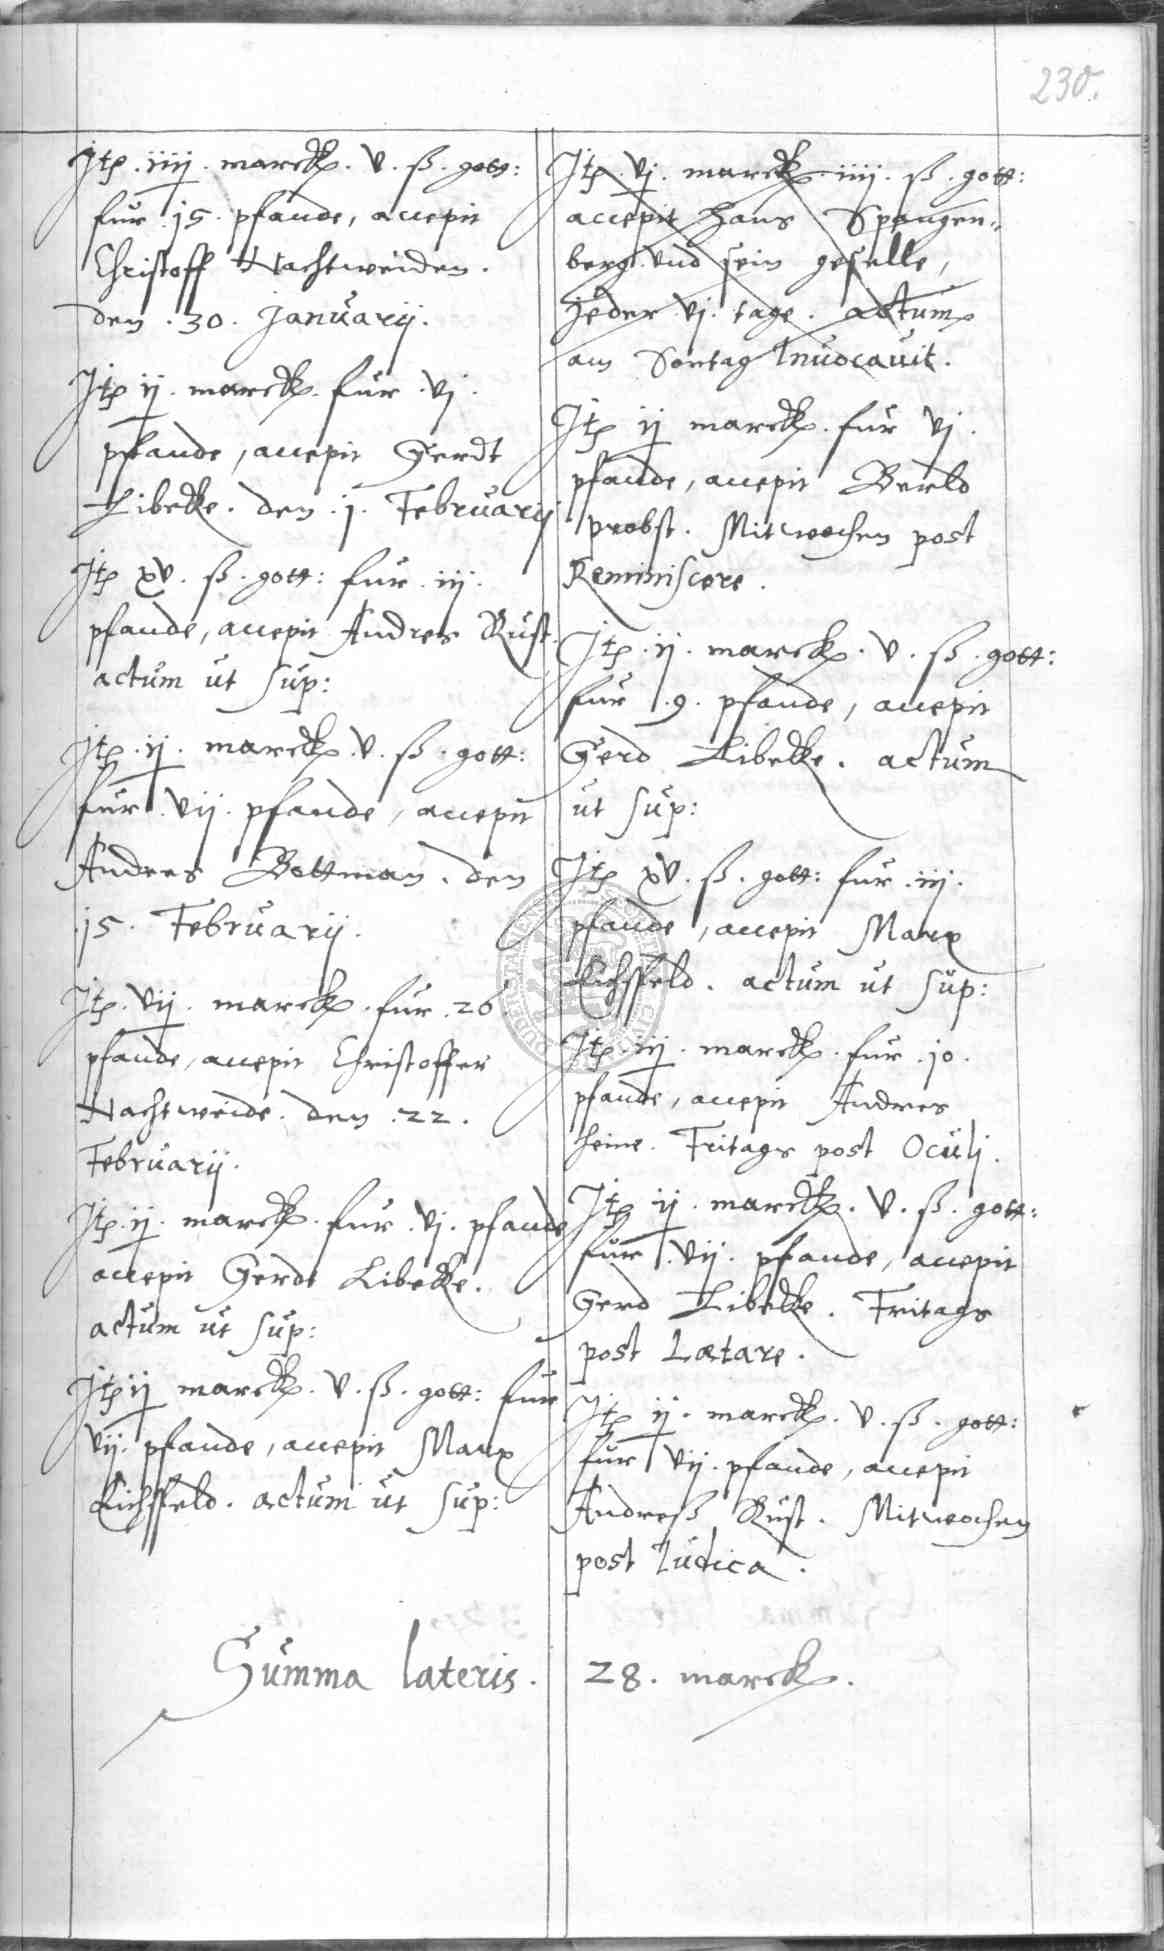 230.
Itp. iiij. marck. v. ß. gott:
fur .15. pfande, accepit
Christoff Nachtweiden.
den .30. Januarij.
Itp ij. marck. fur .vj.
pfande, accepit Gerdt
Libecke. den .j. Februarij
Itp xv. ß. gott: fur .iij.
pfande, accepit Andres Rust.
actum ut sup:
Itp. ij. marck. v. ß. gott:
fur .vij. pfande, accepit
Andres Boltman. den
15. Februarij.
Itp. vij. marck. fur .26
pfande, accepit Christoffer
Nachtweide. den .22.
Februarij.
Itp. ij. marck. fur .vj. pfande
accepit Gerdt Libecke.
actum ut sup:
Itp ij marck. v. ß. gott: fur
vij. pfande, accepit Marx
Eichsfeld. actum ut sup:
Itp. vj. marck iiij. ß. gott:
accepit Hans Spangen„
berg. und sein geselle,
Jeder vj. tage. actum
am Sontag Invocavit.
Itp ij marck. fur vj.
pfande, accepit Berld
probst. Mitwochen post
Reminiscere.
Itp. ij. marck. v. ß. gott:
fur .9. pfande, accepit
Gerd Libecke. actum
ut sup:
Itp xv. ß. gott: fur .iij.
pfande, accepit Marx
Eichsfeld. actum ut sup:
Itp. iij. marck. fur .10.
pfande, accepit Andres
Heine. Fritags post Oculj.
Itp ij. marck. v. ß. gott:
fur .vij. pfande, accepit
Gerd Libecke. Fritags
post Lætare.
Itp ij. marck. v. ß. gott:
fur vij. pfande, accepit
Andreß Rust. Mitwochen
post Iudica.
Summa lateris. 28. marck.